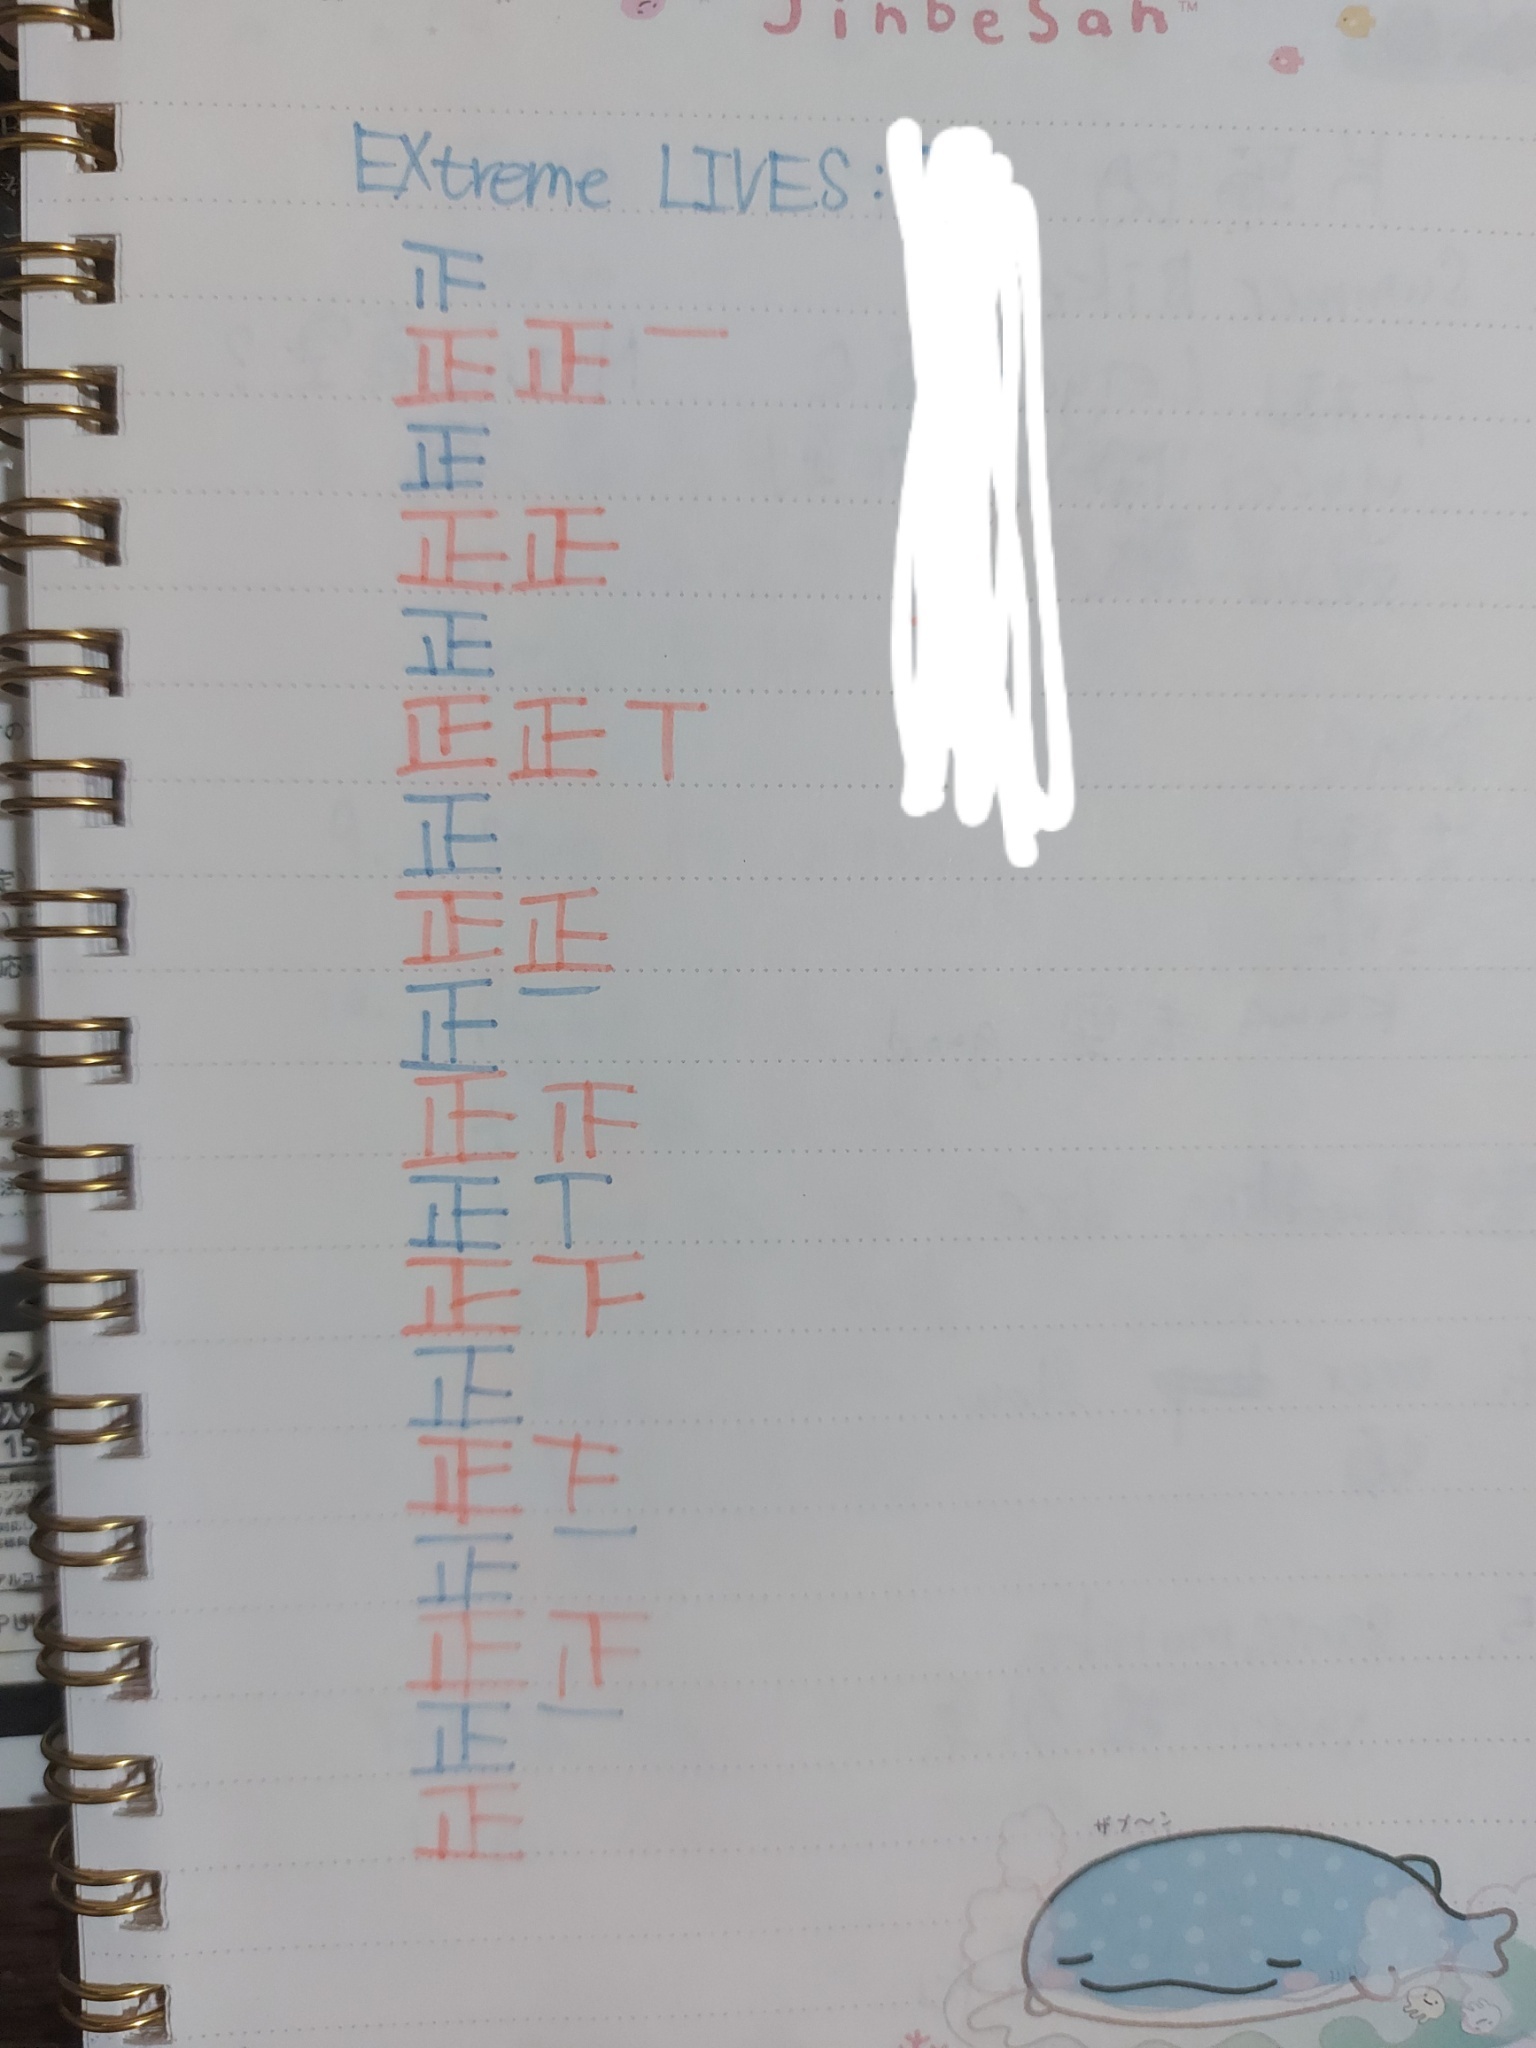 JinbeSan™
EXtreme LIVES:
𝍵
正 正 一
正
正 正
正
正 正 丅
正
正 正
正 一
正 𝍵
正 丅
正 下
正
正 下
正 一
正 𝍵
正 一
正
ザブ〜ン